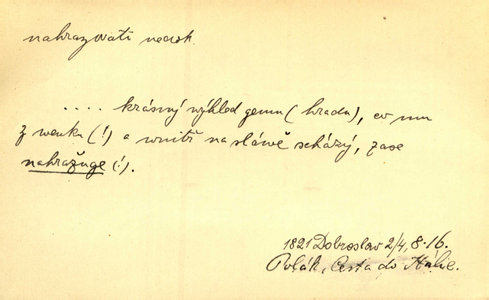 nahrazovati nedok.
.... krásný výhled gemu (hradu), co mu
z wenku (!) a wnitř na sláwě scházý, zase
nahražuge (!).
1821 Dobroslaw 2/4, 8.16.
Polák, Cesta do Itálie.